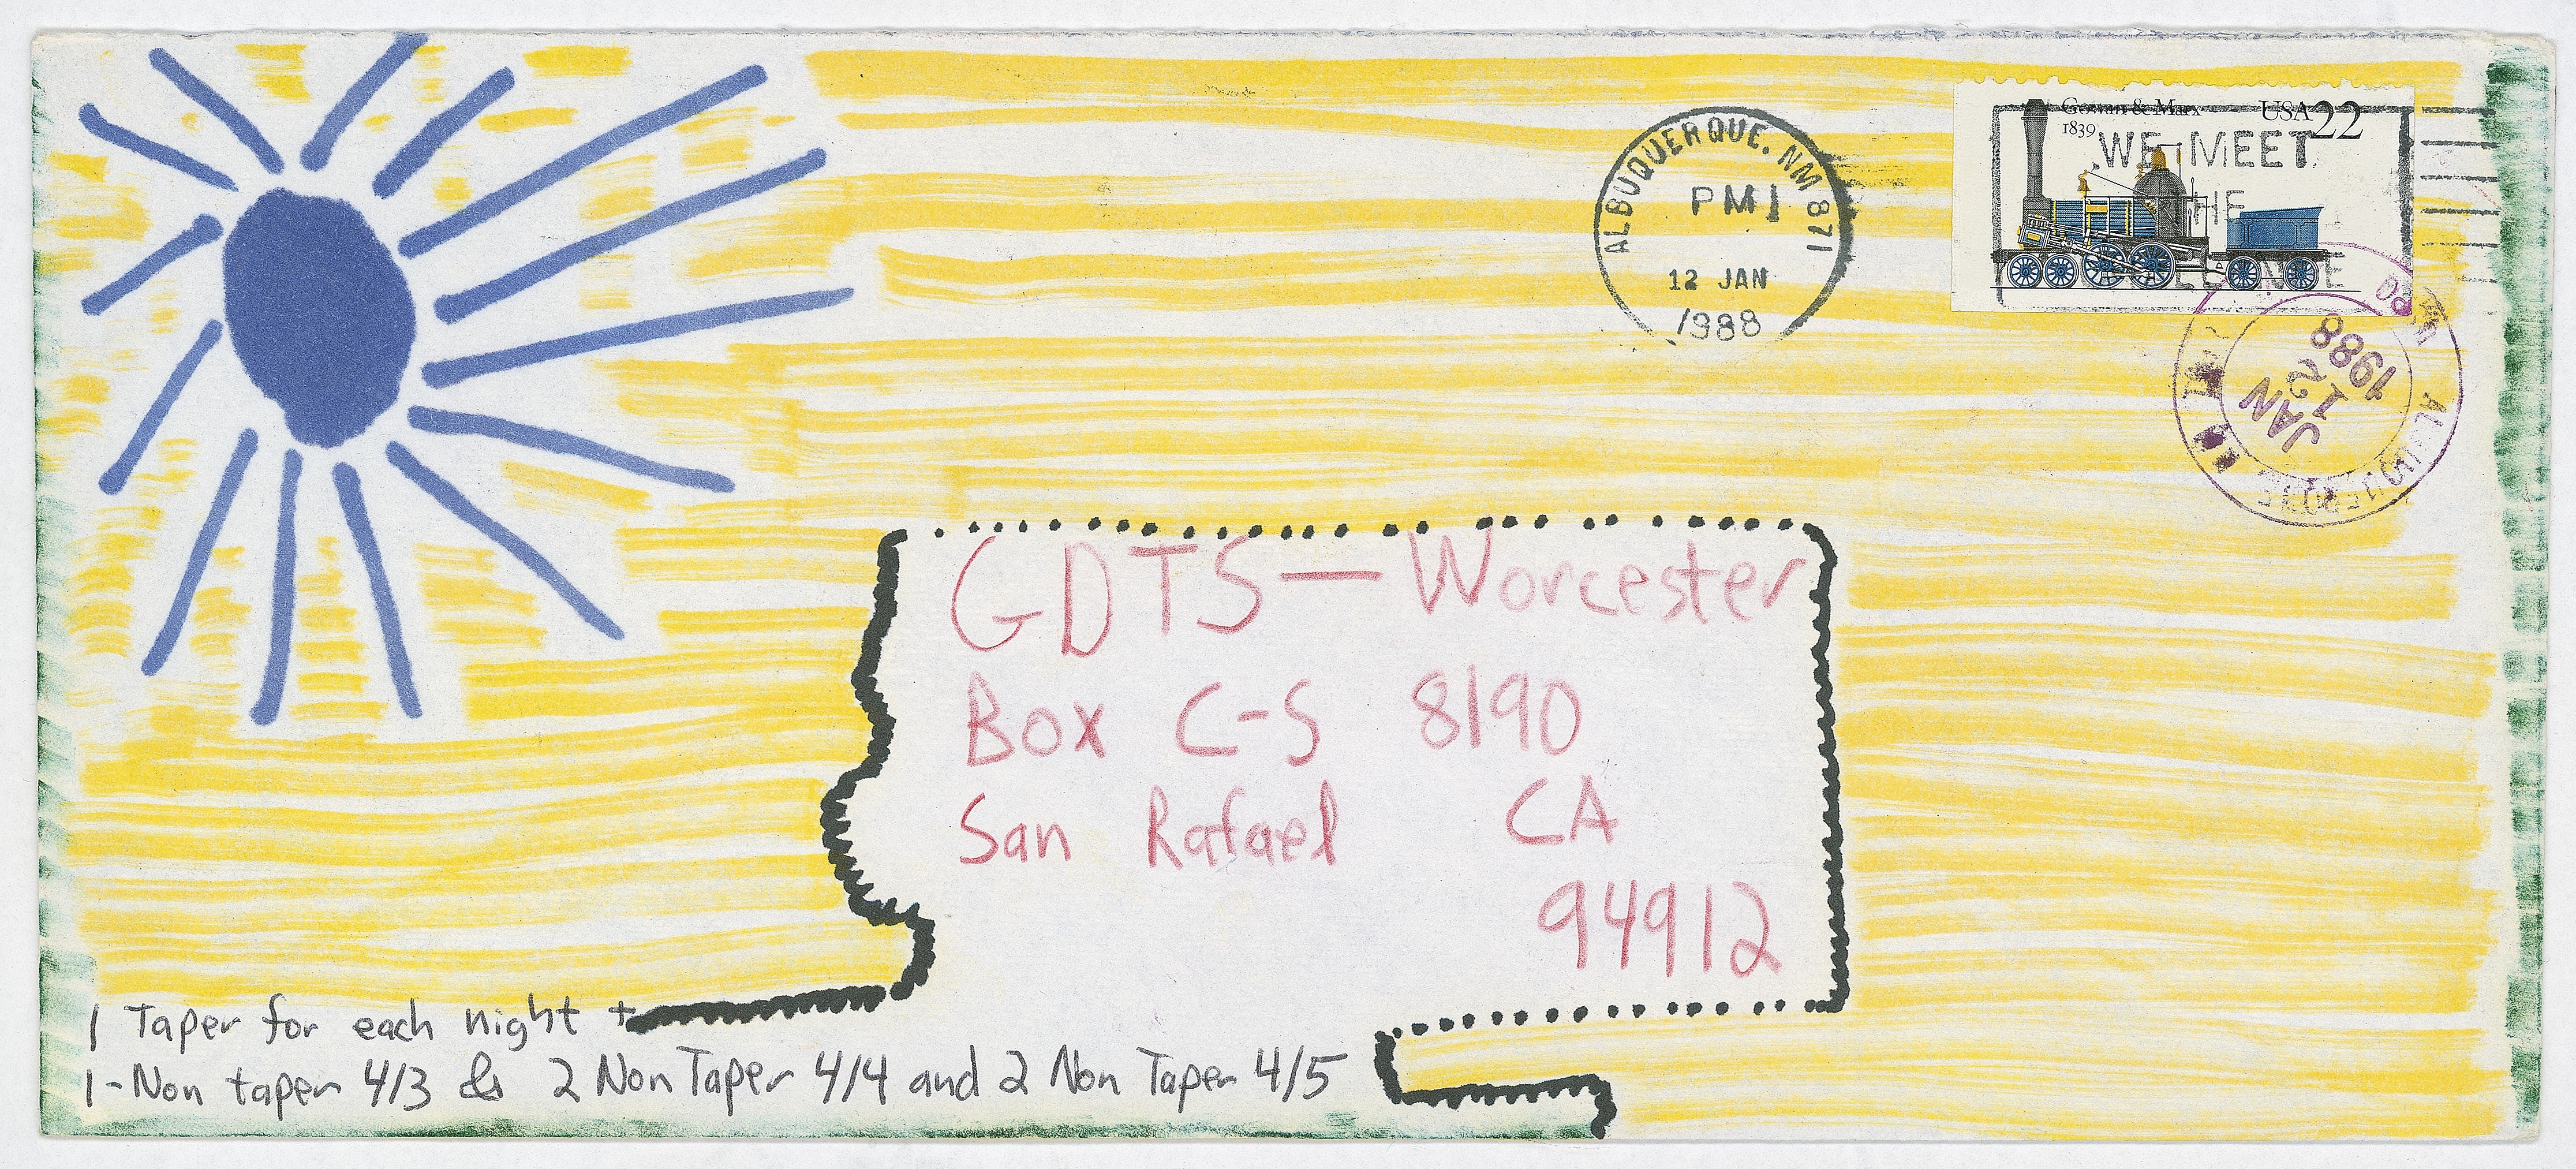 ALBUQUERQUE, NM 871
PM
12 JAN
1988
Gowan & Marx USA 22
1839
WE MEET
JAN
12
1988
GDTS — Worcester
Box C-S 8190
San Rafael CA
94912
1 Taper for each night +
1 - Non taper 4/3 & 2 Non Taper 4/4 and 2 Non Taper 4/5